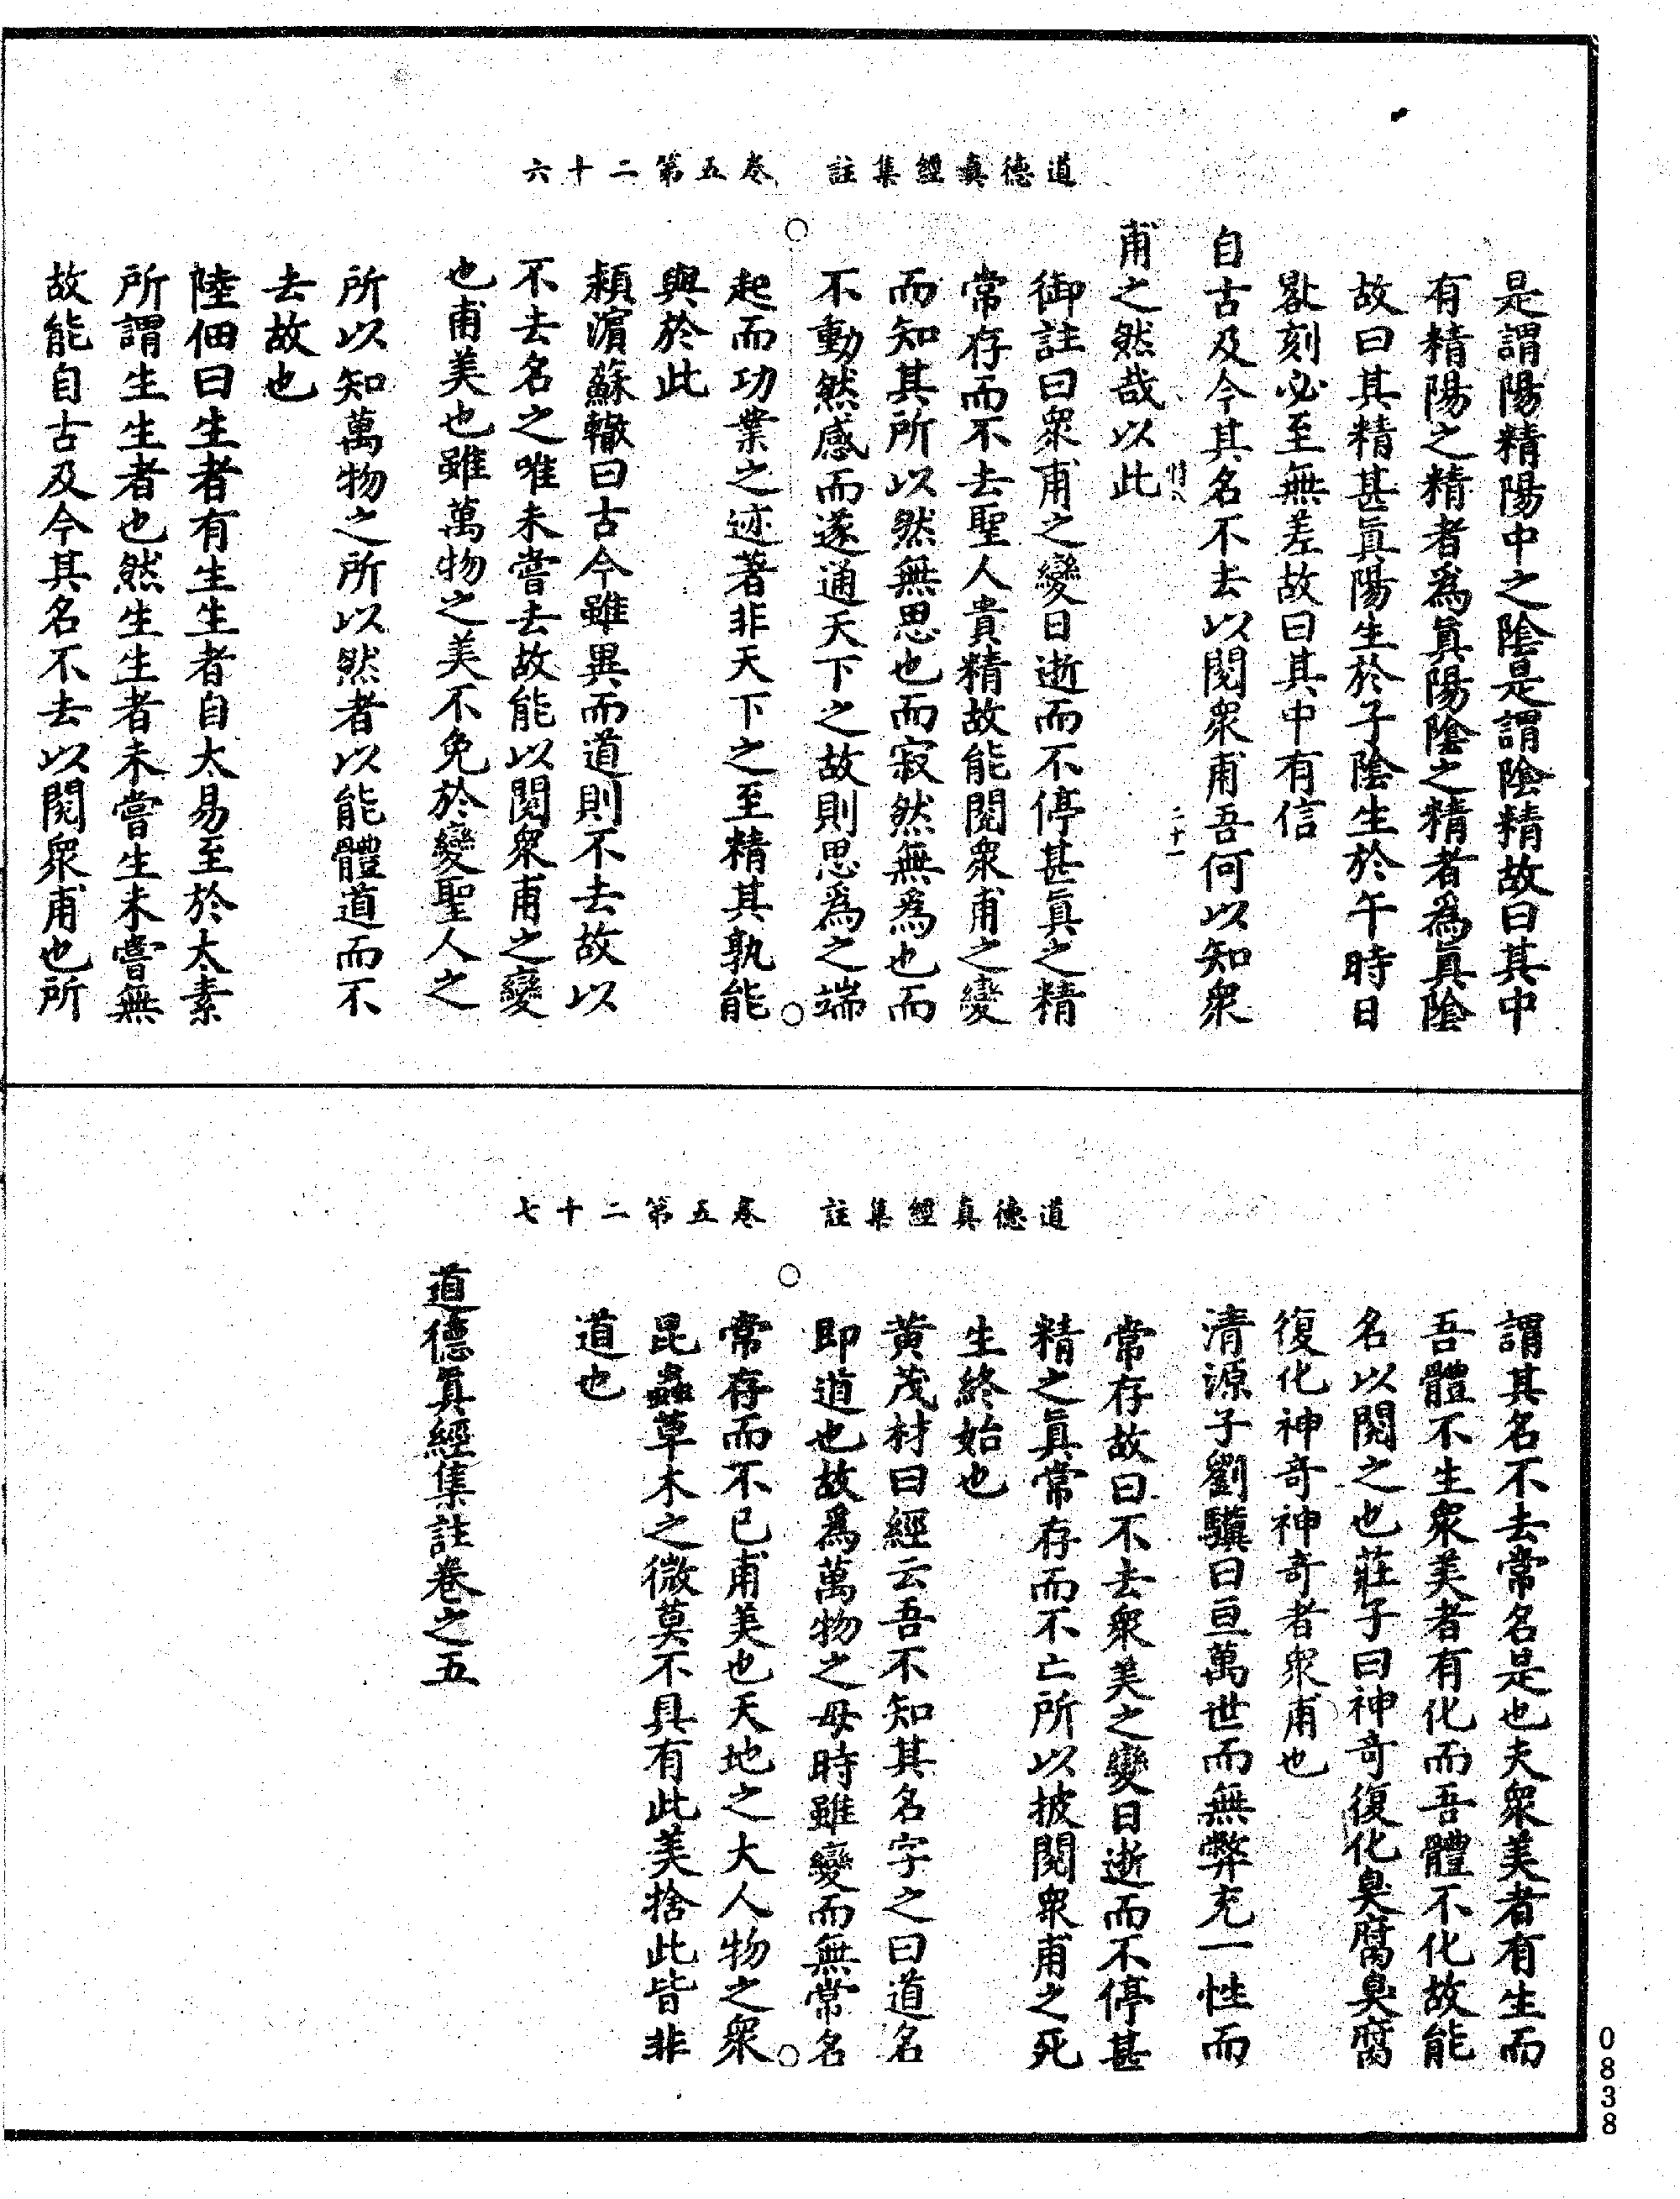 道德真經集註　卷五第二十六
是謂陽精陽中之陰是謂陰精故曰其中
有精陽之精者為眞陽陰之精者為眞陰
故曰其精甚眞陽生於子陰生於午時日
晷刻必至無差故曰其中有信
自古及今其名不去以閱衆甫吾何以知衆
甫之然哉以此
二十一
御註曰衆甫之變日逝而不停甚眞之精
常存而不去聖人貴精故能閱衆甫之變
而知其所以然無思也而寂然無為也而
不動然感而遂通天下之故則思為之端
起而功業之迹著非天下之至精其孰能
與於此
潁濵蘇轍曰古今雖異而道則不去故以
不去名之唯未嘗去故能以閱衆甫之變
也甫美也雖萬物之美不免於變聖人之
所以知萬物之所以然者以能體道而不
去故也
陸佃曰生者有生生者自太易至於太素
所謂生生者也然生生者未嘗生未嘗無
故能自古及今其名不去以閱衆甫也所
道德真經集註　卷五第二十七
謂其名不去常名是也夫衆美者有生而
吾體不生衆美者有化而吾體不化故能
名以閱之也莊子曰神奇復化臭腐臭腐
復化神奇神奇者衆甫也
清源子劉驥曰亘萬世而無弊充一性而
常存故曰不去衆美之變日逝而不停甚
精之眞常存而不亡所以披閱衆甫之死
生終始也
黄茂材曰經云吾不知其名字之曰道名
即道也故為萬物之母時雖變而無常名
常存而不已甫美也天地之大人物之衆
昆蟲草木之微莫不具有此美捨此皆非
道也
道德眞經集註卷之五
0838